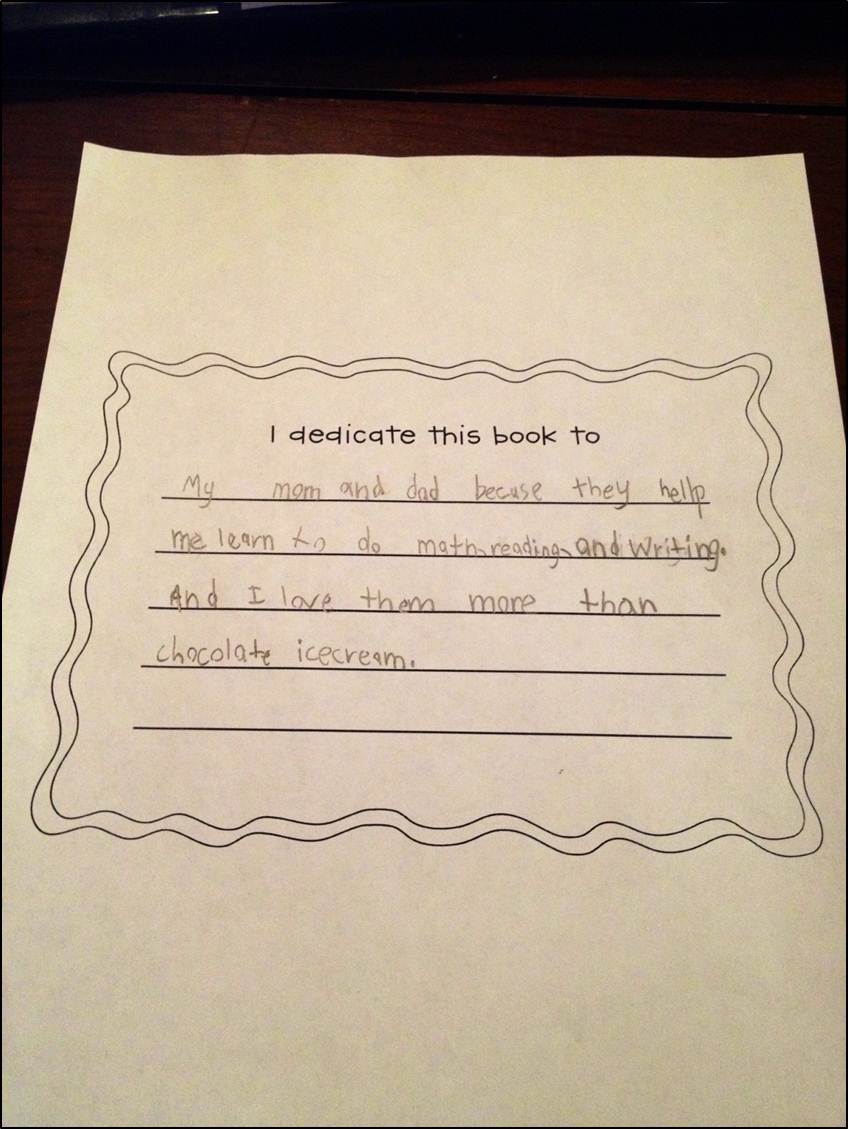 I dedicate this book to
My mom and dad becuse they hellp
me learn to do math, reading, and writing.
And I love them more than
chocolate icecream.